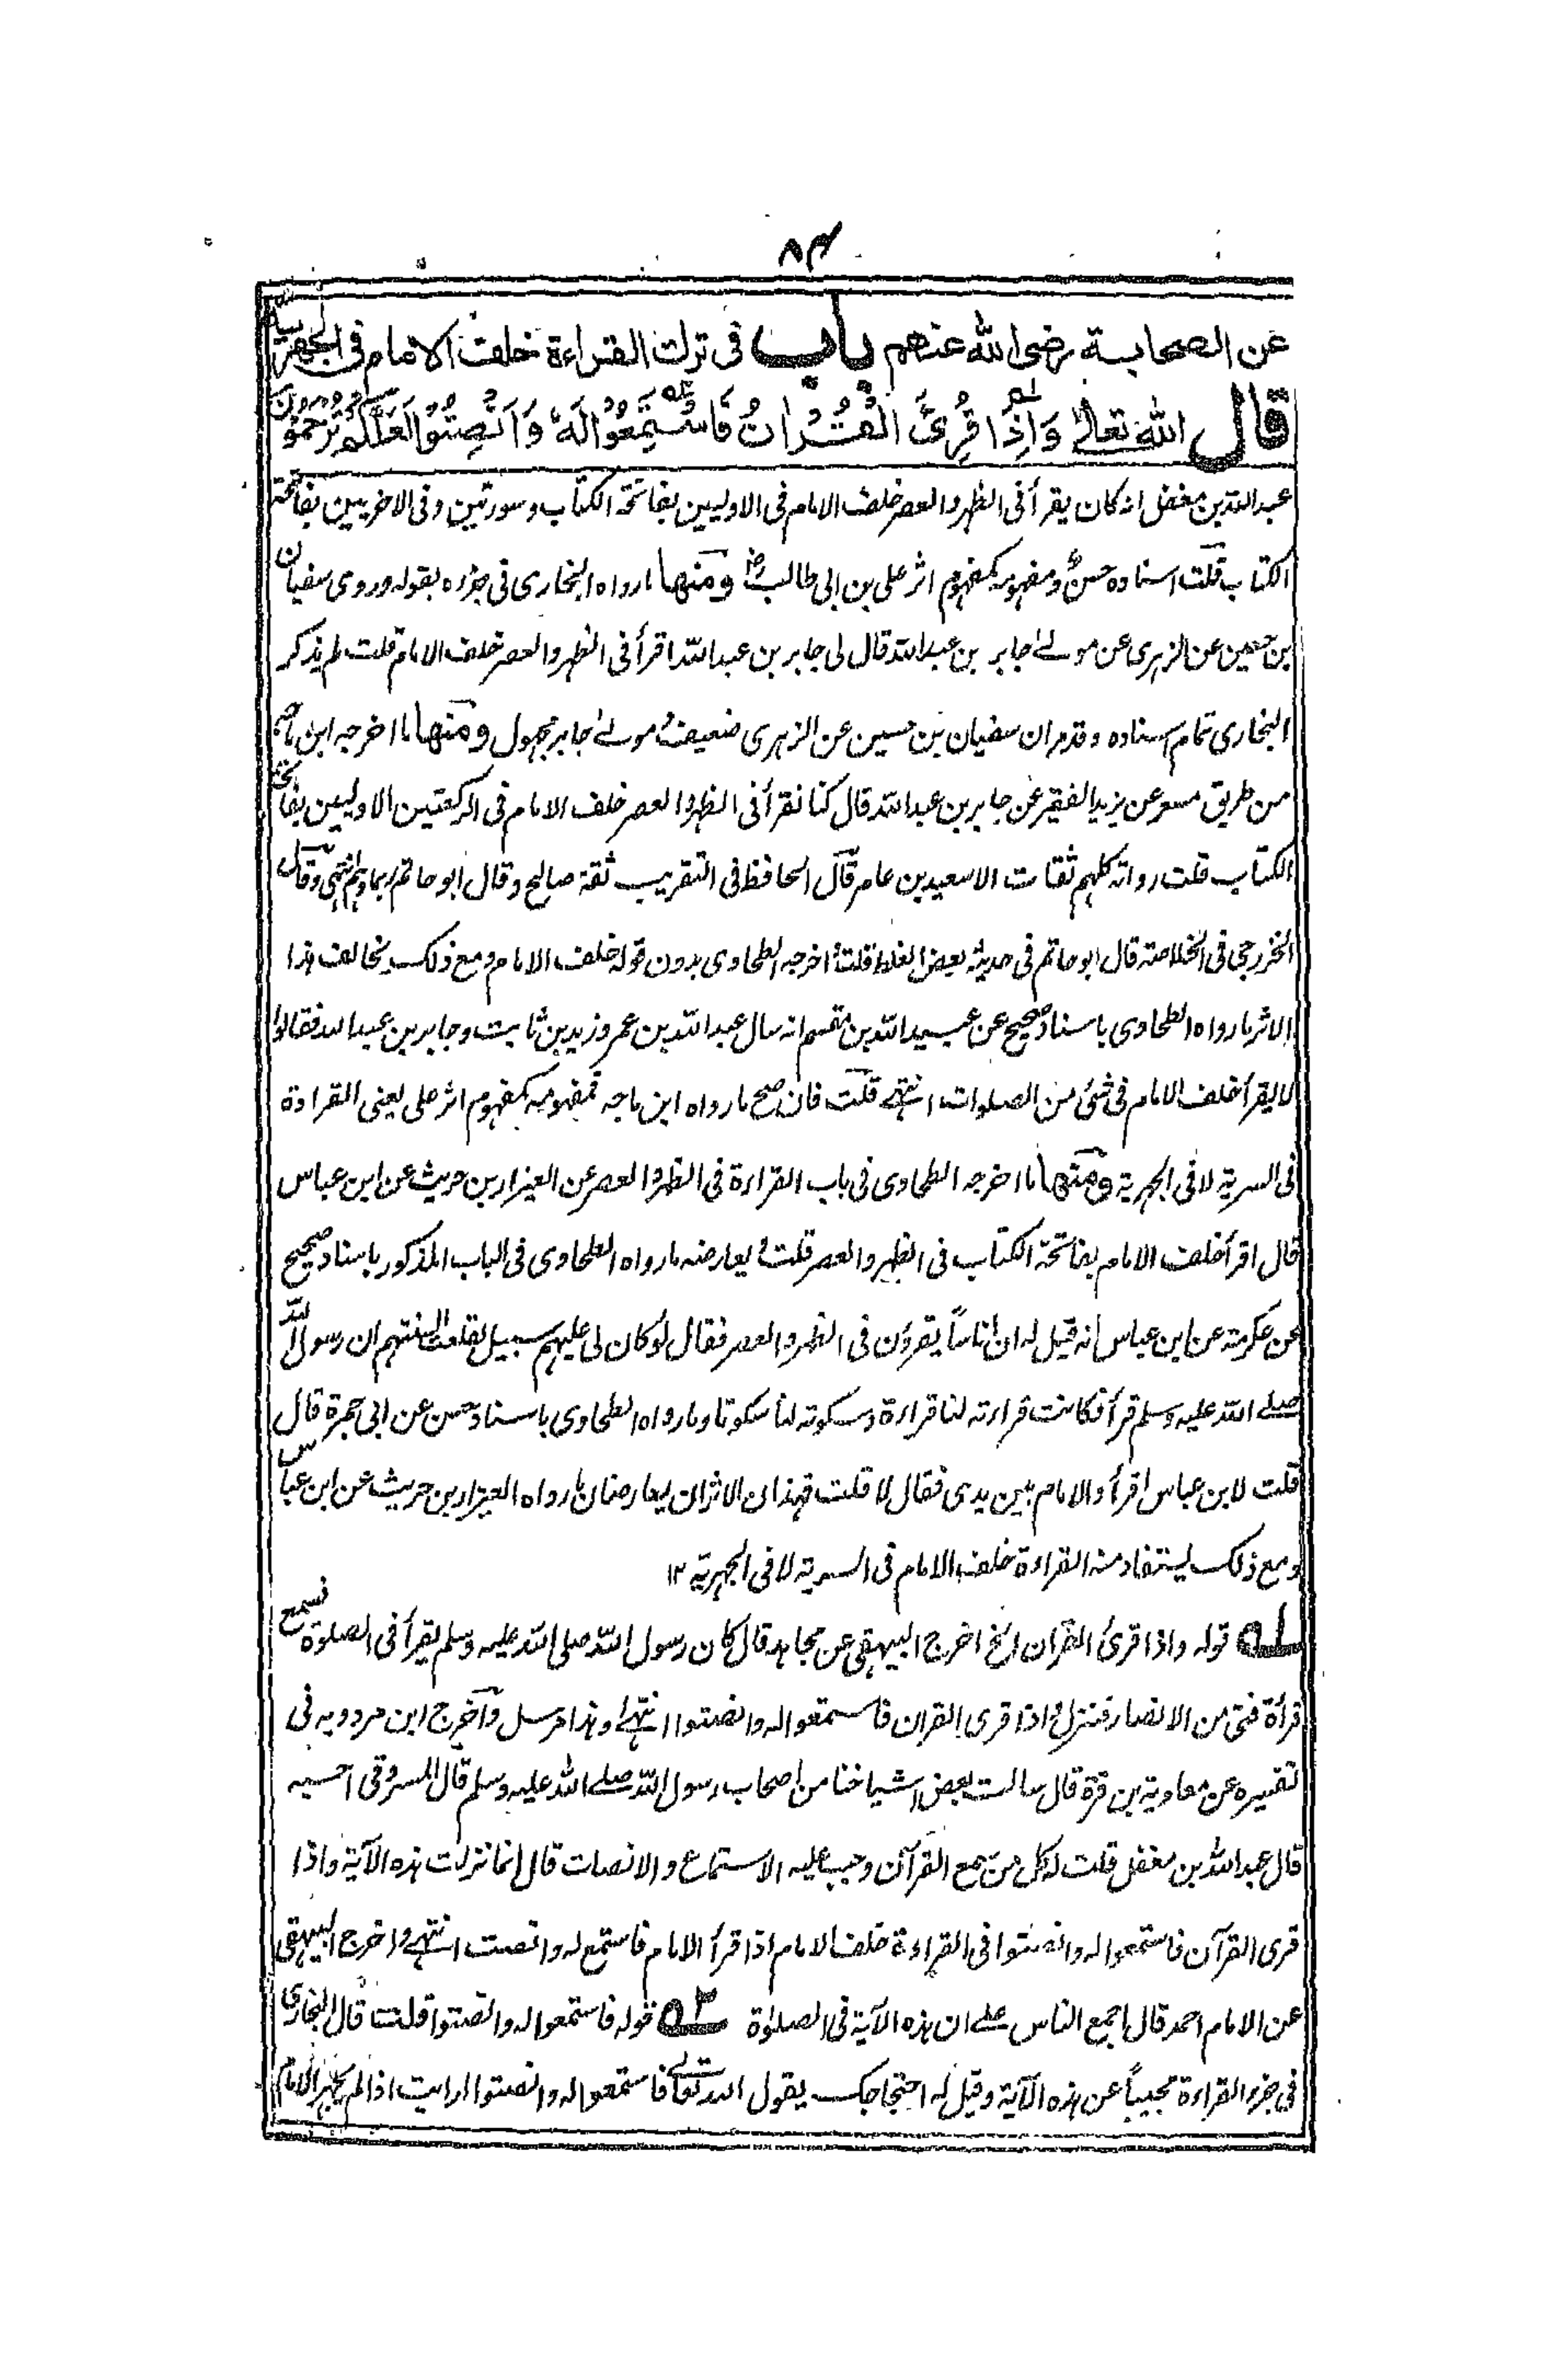 ٨٤
عن الصحابة رضى الله عنهم باب فى ترك القراءة خلف الامام فى الجهرية
قال الله تعالى وَاِذَا قُرِئَ الْقُرْاٰنُ فَاسْتَمِعُوْا لَهٗ وَاَنْصِتُوْا لَعَلَّكُمْ تُرْحَمُوْنَ
عبد الله بن مغفل انه كان يقرأ فى الظهر والعصر خلف الامام فى الاوليين بفاتحة الكتاب وسورتين وفى الاخريين بفاتحة
الكتاب قلت اسناده حسن ومفهومه كمفهوم اثر على بن ابى طالب رض ومنها ما رواه البخارى فى جزءه بقوله وروى سفيان
بن حسين عن الزهرى عن مولى جابر بن عبد الله قال لى جابر بن عبد الله اقرأ فى الظهر والعصر خلف الامام قلت لم يذكر
البخارى تمام اسناده وقد مر ان سفيان بن حسين عن الزهرى ضعيف ومولى جابر مجهول ومنها ما اخرجه ابن ماجه
من طريق مسعر عن يزيد الفقير عن جابر بن عبد الله قال كنا نقرأ فى الظهر والعصر خلف الامام فى الركعتين الاوليين بفاتحة
الكتاب قلت رواته كلهم ثقات الا سعيد بن عامر قال الحافظ فى التقريب ثقة صالح وقال ابو حاتم ربما وهم انتهى وقال
الخزرجى فى الخلاصة قال ابو حاتم فى حديثه بعض الغلط قلت اخرجه الطحاوى بدون قوله خلف الامام ومع ذلك يخالف هذا
الاثر ما رواه الطحاوى باسناد صحيح عن عبيد الله بن مقسم انه سال عبد الله بن عمر وزيد بن ثابت وجابر بن عبد الله فقالوا
لا يقرأ خلف الامام فى شئ من الصلوات انتهى قلت فان صح ما رواه ابن ماجه فمفهومه كمفهوم اثر على يعنى القراءة
فى السرية لا فى الجهرية ومنها ما اخرجه الطحاوى فى باب القراءة فى الظهر والعصر عن العيزار بن حريث عن ابن عباس
قال اقرأ خلف الامام بفاتحة الكتاب فى الظهر والعصر قلت ويعارضه ما رواه الطحاوى فى الباب المذكور باسناد صحيح
عن عكرمة عن ابن عباس انه قيل له ان اناسا يقرؤن فى الظهر والعصر فقال لو كان لى عليهم سبيل لقلعت السنتهم ان رسول الله
صلى الله عليه وسلم قرأ فكانت قراءته لنا قراءة وسكوته لنا سكوتا وما رواه الطحاوى باسناد حسن عن ابى جمرة قال
قلت لابن عباس اقرأ والامام بين يدى فقال لا قلت فهذان الاثران يعارضان ما رواه العيزار بن حريث عن ابن عباس
ومع ذلك يستفاد منه القراءة خلف الامام فى السرية لا فى الجهرية ١٢
١ه قوله واذا قرئ القران الخ اخرج البيهقى عن مجاهد قال كان رسول الله صلى الله عليه وسلم يقرأ فى الصلوة فسمع
قرأة فتى من الانصار فنزل واذا قرى القران فاستمعوا له وانصتوا انتهى وهذا مرسل وآخرج ابن مردويه فى
تفسيره عن معاوية بن قرة قال سالت بعض اشياخنا من اصحاب رسول الله صلى الله عليه وسلم قال المسروقى احسبه
قال عبد الله بن مغفل قلت له كل من سمع القرآن وجب عليه الاستماع والانصات قال انما نزلت هذه الآية واذا
قرى القرآن فاستمعوا له وانصتوا فى القراءة خلف الامام اذا قرأ الامام فاستمع له وانصت انتهى واخرج البيهقى
عن الامام احمد قال اجمع الناس على ان هذه الآية فى الصلوٰة ٢ه قوله فاستمعوا له وانصتوا قلت قال البخارى
فى جزء القراءة مجيباً عن هذه الآية وقيل له احتجاجك بقول الله تعالى فاستمعوا له وانصتوا ارايت اذا لم يجهر الامام